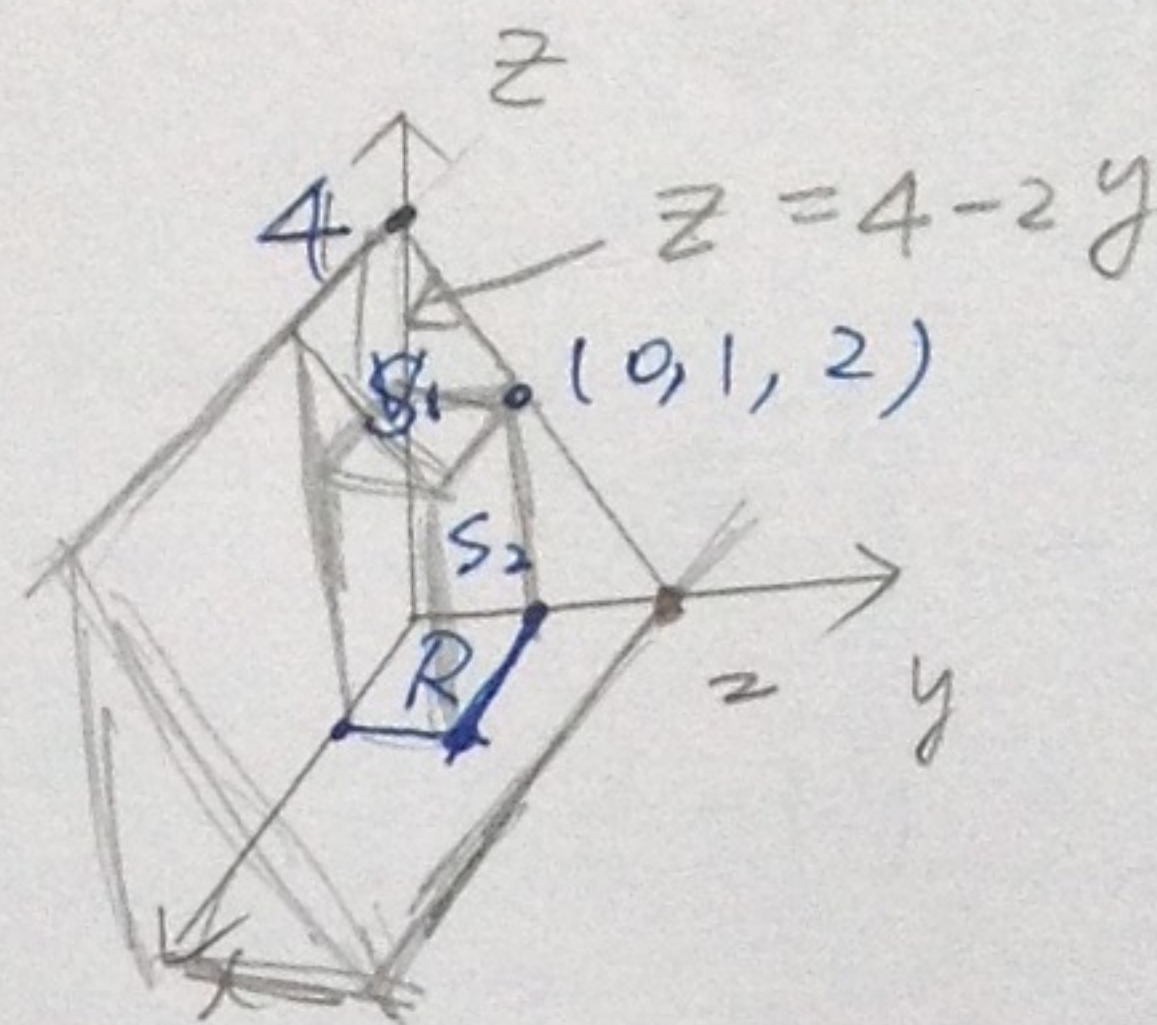 z
4
z = 4 - 2y
S₁
(0, 1, 2)
S₂
R
2
y
x